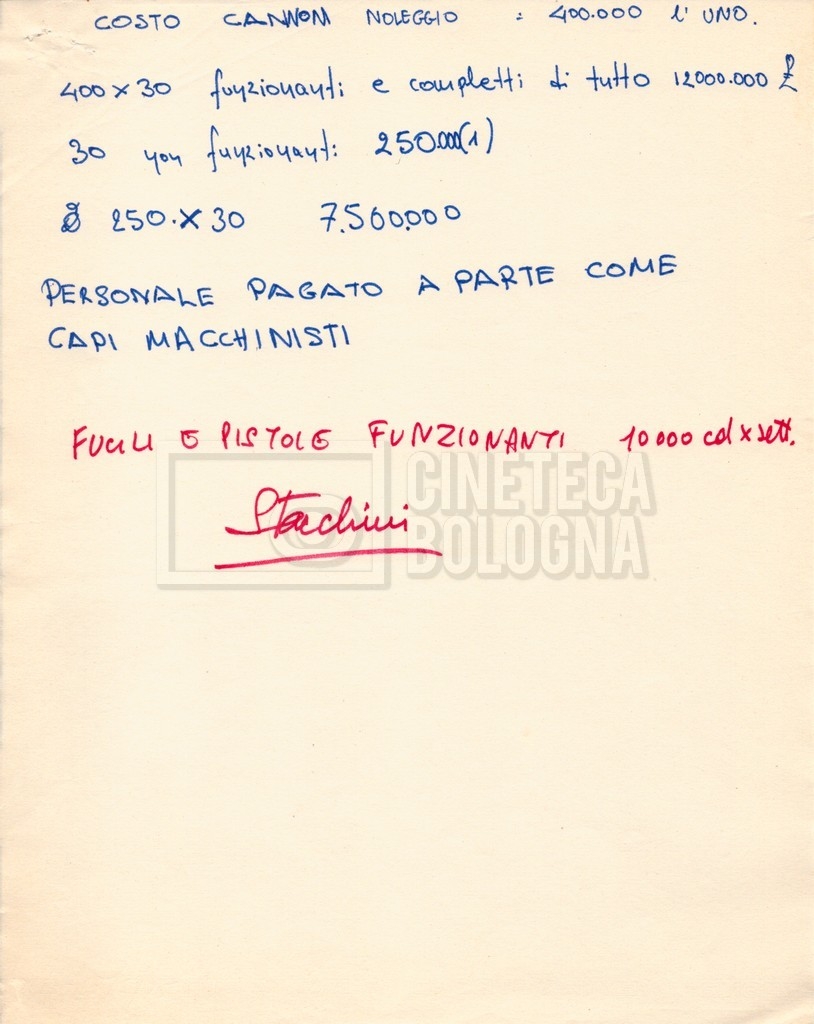 COSTO CANNONI NOLEGGIO : 400.000 l'UNO.
400 x 30 funzionanti e completti di tutto 12000.000 £
30 non funzionanti: 250.000(1)
250. X 30 7.500.000
PERSONALE PAGATO A PARTE COME
CAPI MACCHINISTI
FUCILI E PISTOLE FUNZIONANTI 10000 cd x sett.
Stacchini
CINETECA
BOLOGNA